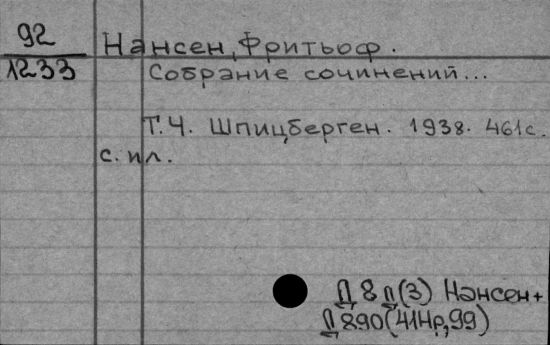 92
1233
Нансен, Фритьоф.
Собрание сочинений...
Т.4. Шпицберген. 1938. 461с.
с. ил.
Д8д(3) Нансен+
Д890(41Нр,99)